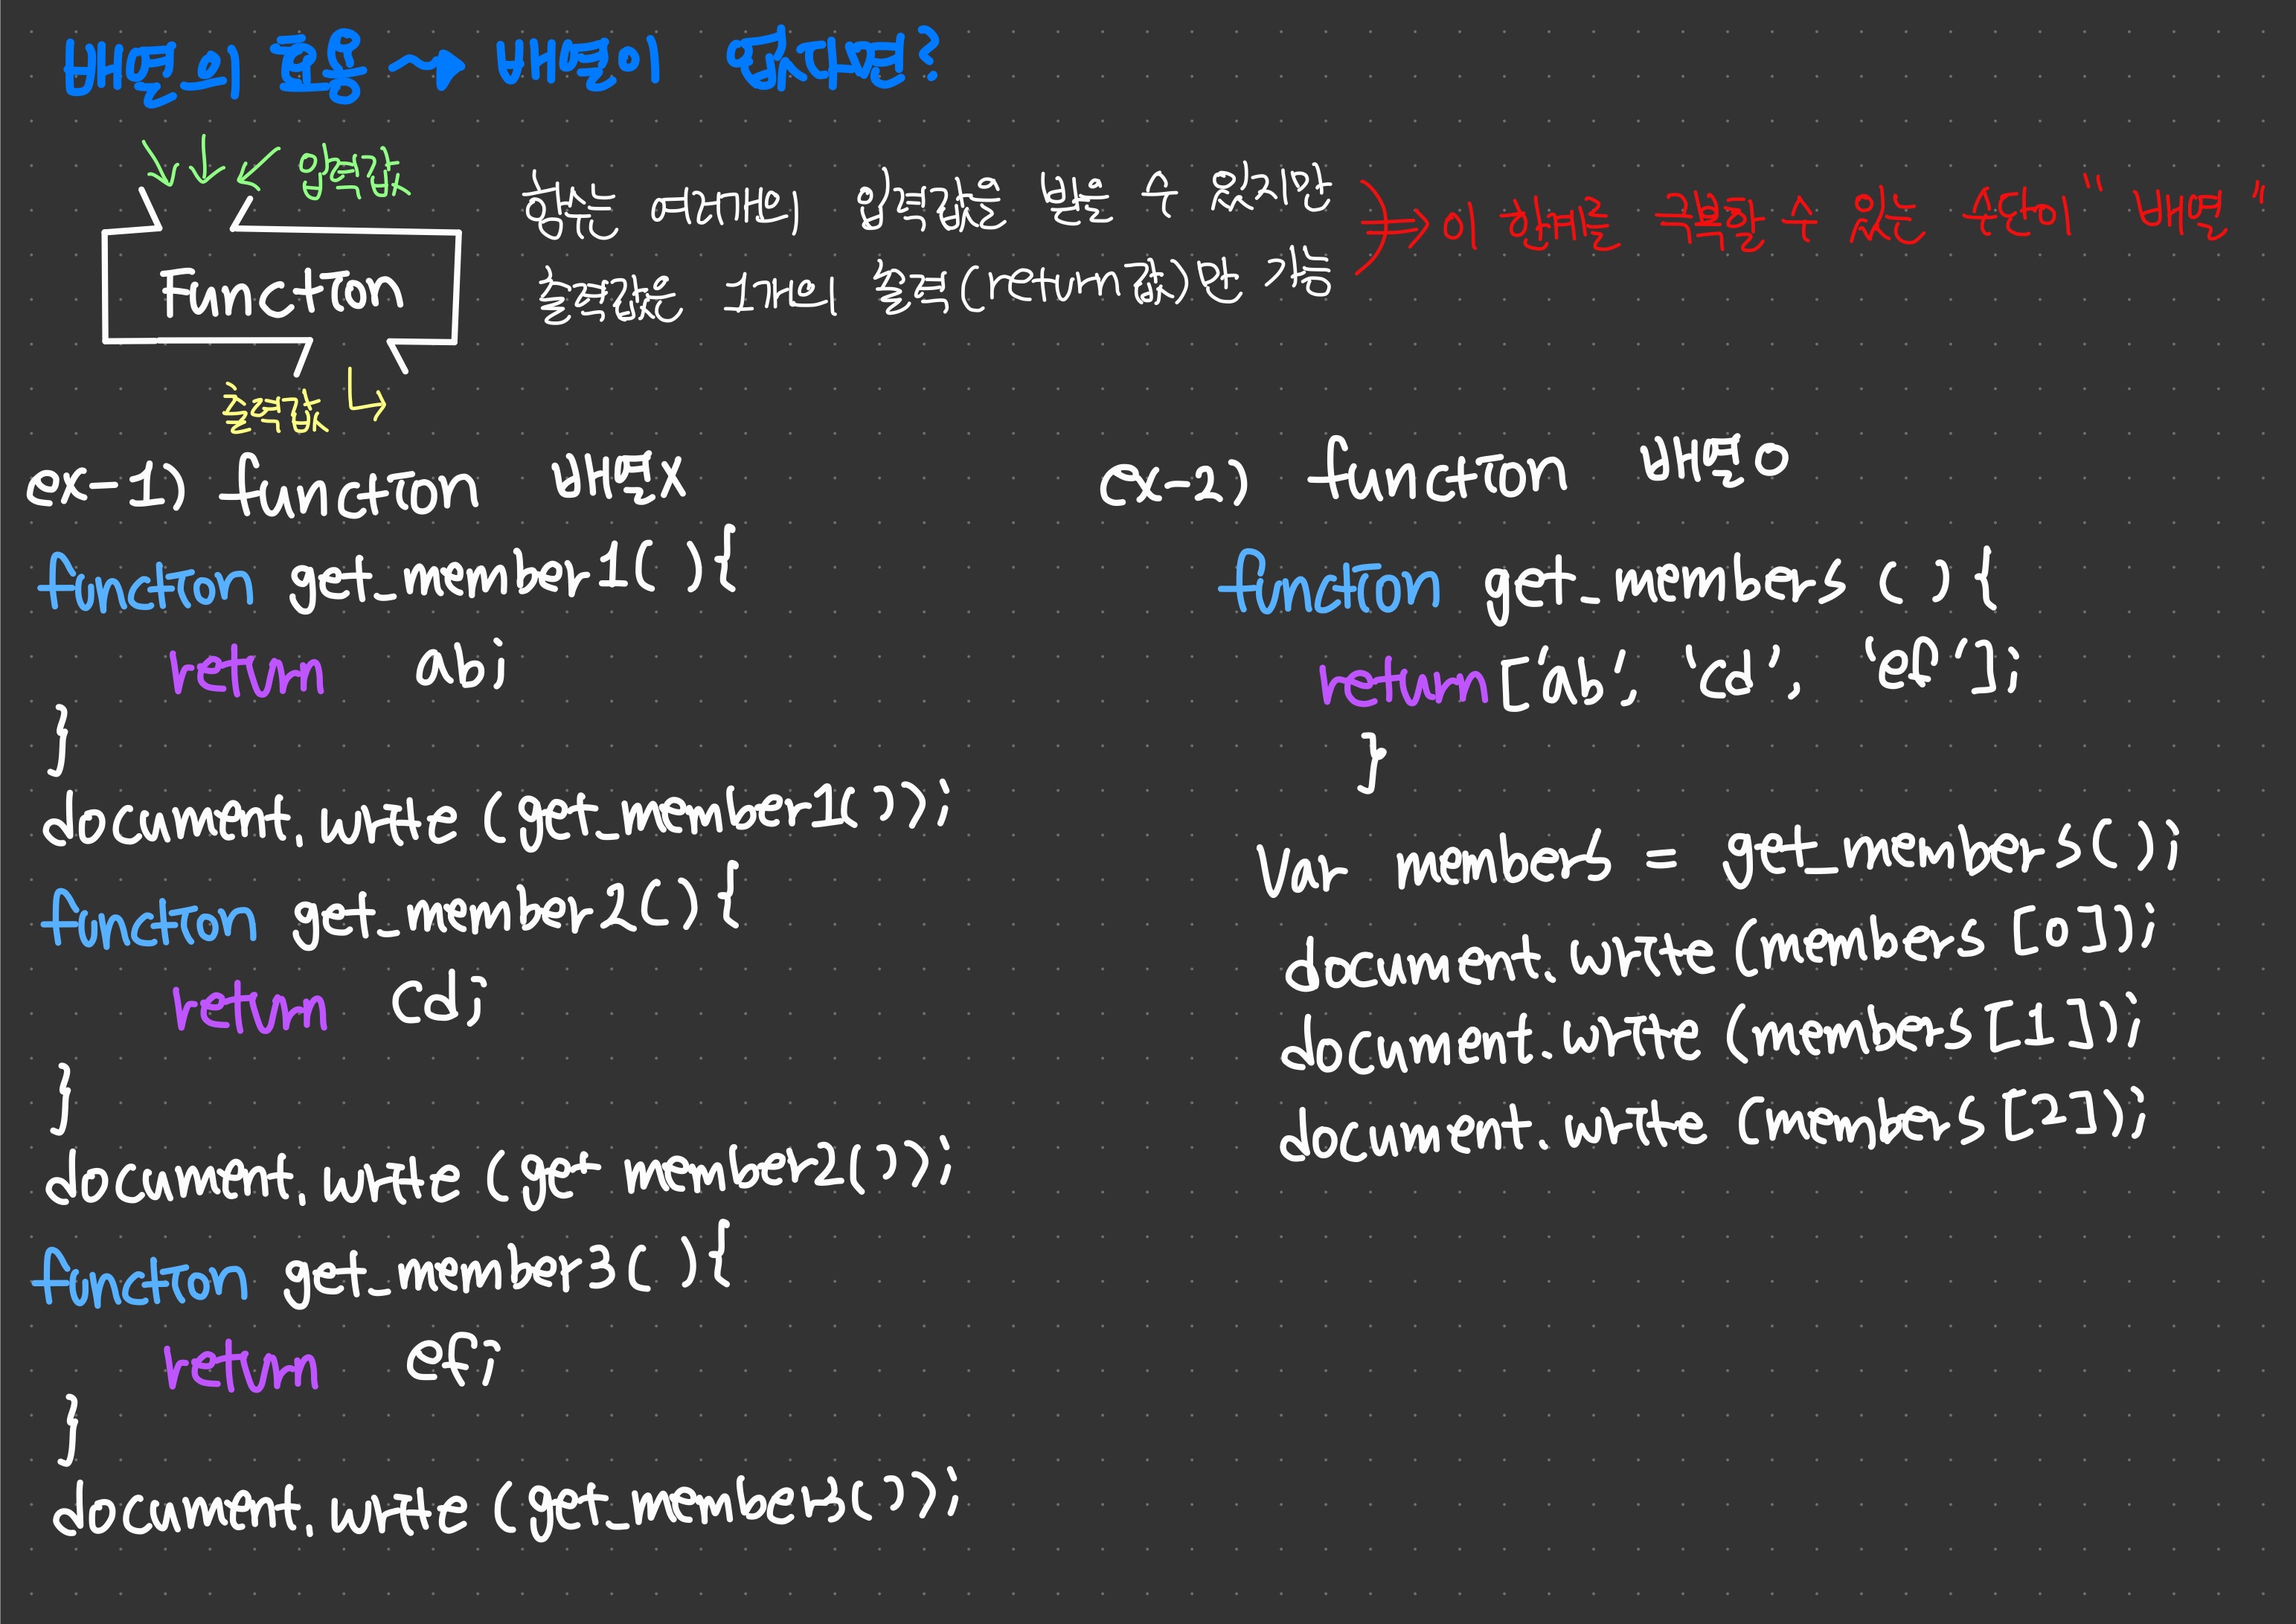 배열의 효용 → 배열이 없다면?
입력값
Function
출력값
함수는 여러개의 입력값을 받을 수 있지만
출력값은 1개의 출력(return값)만 가능
이 한계를 극복할 수 있는 수단이 "배열"
ex-1) function 배열X
function get_member1( ){
return ab;
}
document.write (get_member1());
function get_member2() {
return cd;
}
document.write (get member2());
function get_member3( ){
return ef;
}
document.write (get_member3());
ex-2) function 배열O
function get_members ( ) {
return ['ab', 'cd', 'ef'];
}
Var members = get_members();
document.write (members [0]);
document.write (members [1]);
document.write (members [2]);